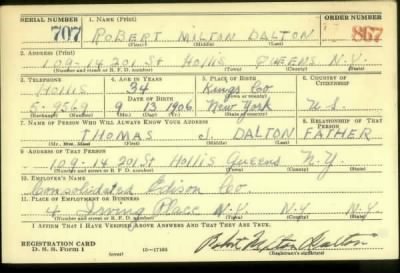 SERIAL NUMBER 1. NAME (Print) ORDER NUMBER
707 ROBERT MILTON DALTON 867
(First) (Middle) (Last)
2. ADDRESS (Print)
109-14 201 St Hollis QUEENS N.Y.
(Number and street or R. F. D. number) (Town) (County) (State)
3. TELEPHONE 4. AGE IN YEARS 5. PLACE OF BIRTH 6. COUNTRY OF CITIZENSHIP
Hollis 34 Kings Co
DATE OF BIRTH (Town or county)
5-9569 9 13 1906 New York U.S.
(Exchange) (Number) (Mo.) (Day) (Yr.) (State or country)
7. NAME OF PERSON WHO WILL ALWAYS KNOW YOUR ADDRESS 8. RELATIONSHIP OF THAT PERSON
THOMAS J. DALTON FATHER
(Mr., Mrs., Miss) (First) (Middle) (Last)
9. ADDRESS OF THAT PERSON
109-14 201 St Hollis Queens N.Y.
(Number and street or R. F. D. number) (Town) (County) (State)
10. EMPLOYER'S NAME
Consolidated Edison Co.
11. PLACE OF EMPLOYMENT OR BUSINESS
4 Irving Place N.Y. N.Y. N.Y.
(Number and street or R. F. D. number) (Town) (County) (State)
I AFFIRM THAT I HAVE VERIFIED ABOVE ANSWERS AND THAT THEY ARE TRUE.
REGISTRATION CARD
D. S. S. Form 1 (over) 16-17105 Robert Milton Dalton
(Registrant's signature)